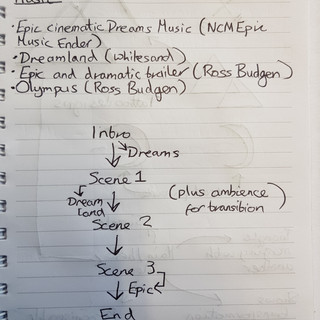 Music
• Epic cinematic Dreams Music (NCM Epic
Music Ender)
• Dreamland (whitesand)
• Epic and dramatic trailer (Ross Budgen)
• Olympus (Ross Budgen)
Intro
Dreams
Scene 1
Dream
land
(plus ambience
for transition)
Scene 2
Scene 3
Epic
End